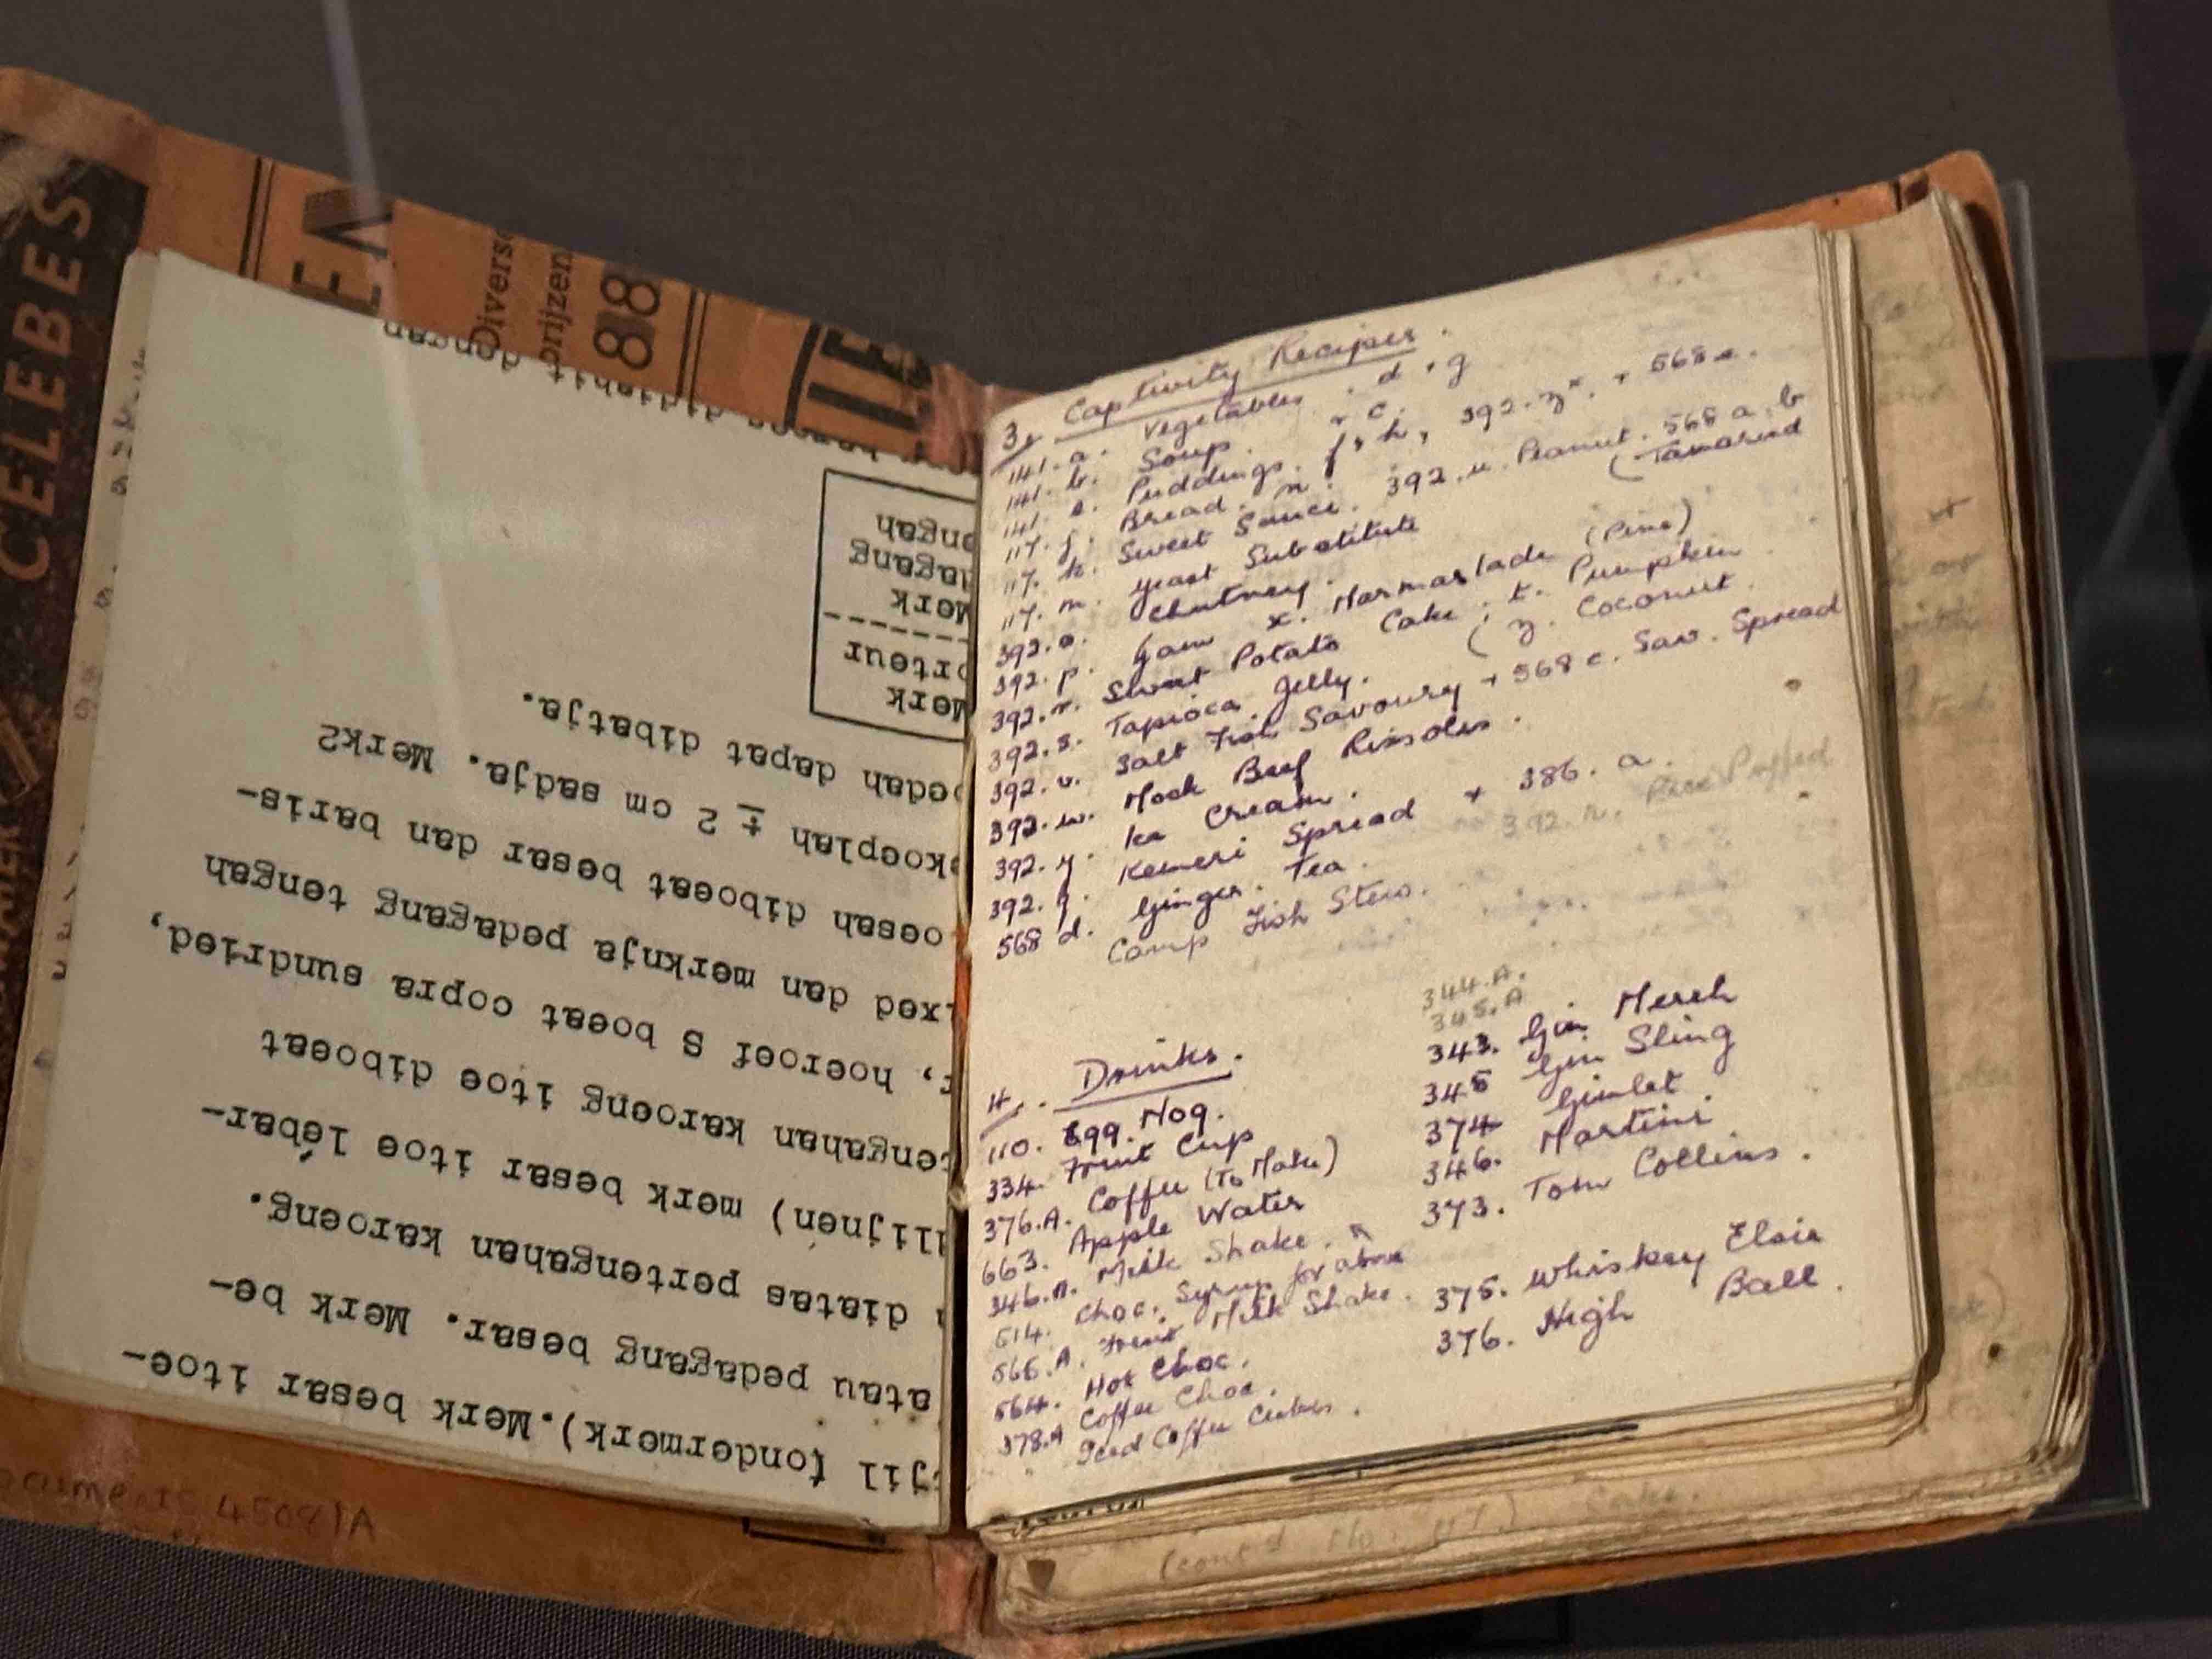 CELEBES
EN
Divers
prijzen
88
LE
dengan
engah
dagang
Merk
rteur
Merk
oedah dapat dibatja.
koeplah ± 2 cm sadja. Merk2
oesah diboeat besar dan baris-
ixed dan merknja pedagang tengah
, hoeroef S boeat copra sundried,
tengahan karoeng itoe diboeat
llijnen) merk besar itoe lébar-
diatas pertengahan karoeng.
atau pedagang besar. Merk be-
tjil (ondermerk). Merk besar itoe-
Documents 45081A
3. Captivity Recipes.
141. a. Vegetables. d + g
141. b. Soup. + c.
141. e. Puddings. f, h, 392. z*. + 568 e.
117. j. Bread. n.
117. k. Sweet Sauce. 392. u. Peanut. 568 a, b
(Tamarind
117. m. Yeast Substitute
392. o. Chutney.
392. p. Jam x. Marmalade (Pine)
392. r. Sweet Potato Cake; t. Pumpkin
(z. Coconut.
392. s. Tapioca Jelly.
392. v. Salt Fish Savoury + 568 c. Sav. Spread
392. w. Mock Beef Rissoles.
392. y. Ice Cream.
392. q. Kemeri Spread + 386. a.
568 d. Ginger. Tea.
392. n. Rice Puffed
Camp Fish Stew.
4. Drinks.
110. Egg. Nog.
334. Fruit Cup
376.A. Coffee (To Make)
663. Apple Water
346.A. Milk Shake.
514. Choc. Syrup for above
565.A. Fruit Milk Shake.
564. Hot Choc.
378.A Coffee Choc.
Iced Coffee Cubes.
344.A.
345.A
343. Gin Merch
345 Gin Sling
374 Gimlet
346. Martini
373. Tom Collins.
375. Whiskey Elsie
376. High Ball.
(cont'd No. 47.) Cake.